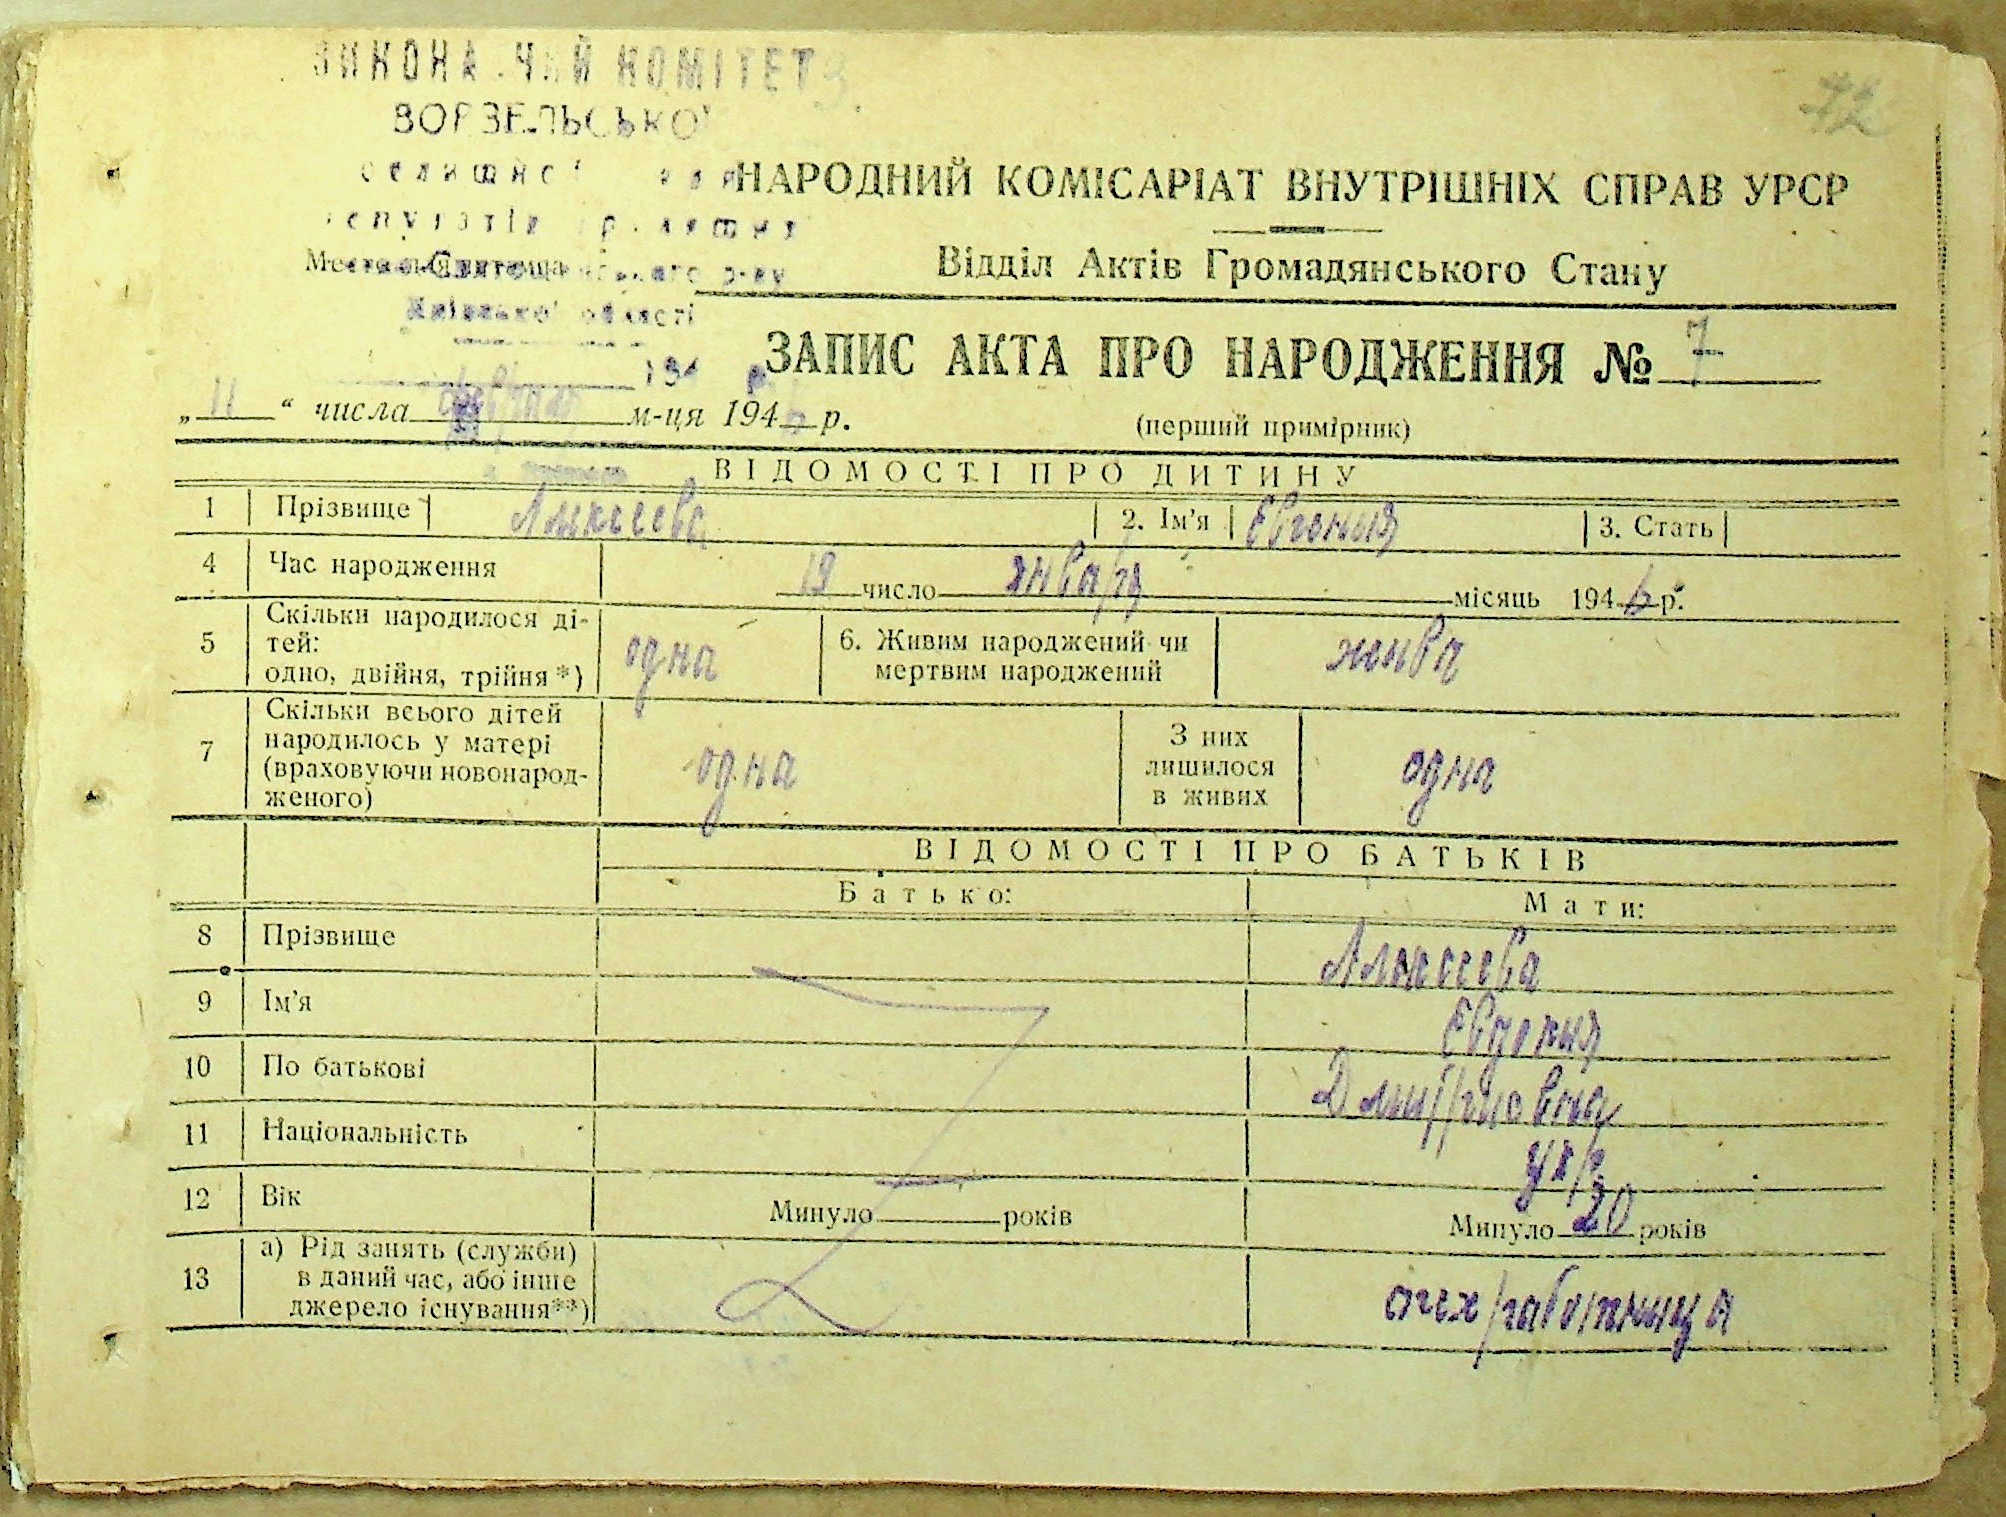 72
ВИКОНА ЧИЙ КОМІТЕТ
ВОРЗЕЛЬСЬКОЇ
селищної
НАРОДНИЙ КОМІСАРІАТ ВНУТРІШНІХ СПРАВ УРСР
депутатів
Відділ Актів Громадянського Стану
Київської області
ЗАПИС АКТА ПРО НАРОДЖЕННЯ № 7
(перший примірник)
„ 11 “ числа м-ця 194 р.
ВІДОМОСТІ ПРО ДИТИНУ
1 Прізвище Алексеева 2. Ім'я Евгения 3. Стать
4 Час народження 19 число января місяць 1946 р.
5 Скільки народилося ді-
тей:
одно, двійня, трійня *) одна 6. Живим народжений чи
мертвим народжений жива
7 Скільки всього дітей
народилось у матері
(враховуючи новонарод-
женого) одна З них
лишилося
в живих одна
ВІДОМОСТІ ПРО БАТЬКІВ
Батько: Мати:
8 Прізвище Алексеева
9 Ім'я Евдокия
10 По батькові Дмитриевна
11 Національність укр
12 Вік Минуло років Минуло 20 років
13 а) Рід занять (служби)
в даний час, або інше
джерело існування**) работница